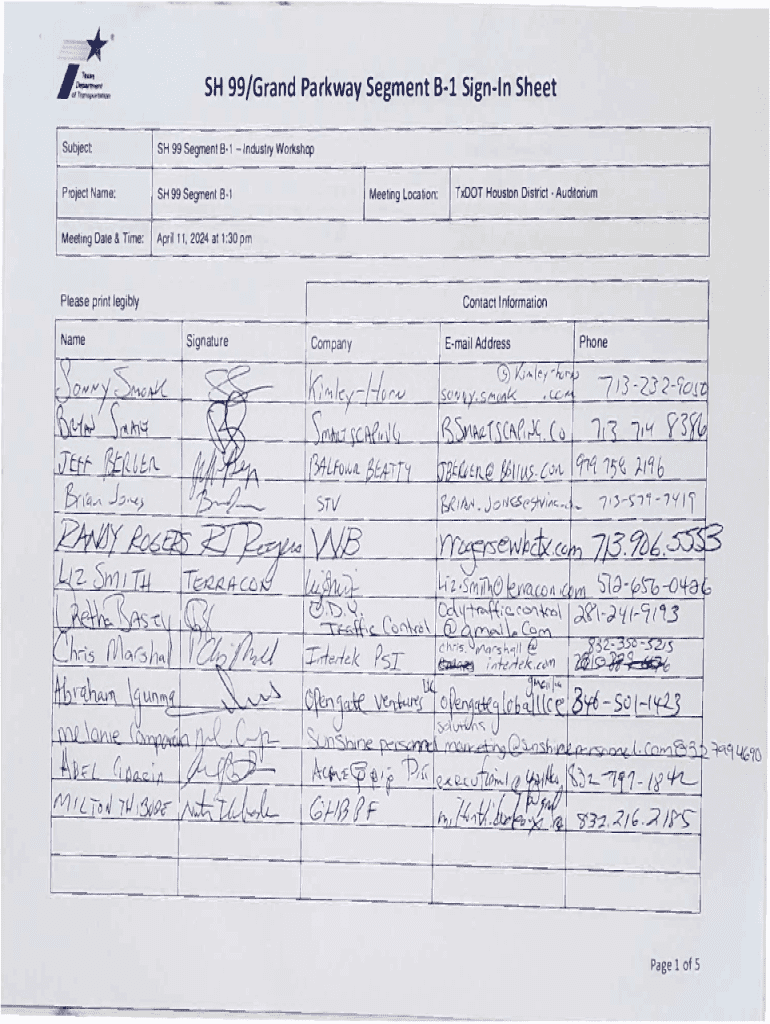 Texas
Department
of Transportation
SH 99/Grand Parkway Segment B-1 Sign-In Sheet
Subject: SH 99 Segment B-1 – Industry Workshop
Project Name: SH 99 Segment B-1 Meeting Location: TxDOT Houston District - Auditorium
Meeting Date & Time: April 11, 2024 at 1:30 pm
Please print legibly Contact Information
Name Signature Company E-mail Address Phone
SONNY SMOAK Kimley-Horn sonny.smoak @kimley-horn .com 713-232-9050
BRYAN SMARTSCAPING 713 714 8386
JEFF BERGER BALFOUR BEATTY 979 758 2196
Brian Jones STV 713-579-7419
RANDY ROGERS RT Rogers WB rrogers@wbctx.com 713.906.5553
LIZ SMITH TERRACON Liz.Smith@terracon.com 512-656-0426
Retha O.D.Y. Traffic Control Odytrafficcontrol @gmail.com 281-241-9193
Chris Marshall Intertek PSI chris.marshall@ intertek.com 832-350-5215
Abraham Opengate Ventures 346-501-1423
melanie Sunshine personnel solutions marketing@sunshinepersonnel.com 832 799 4690
ABEL 832-797-1842
MILTON THIBODE 832.216.2185
Page 1 of 5